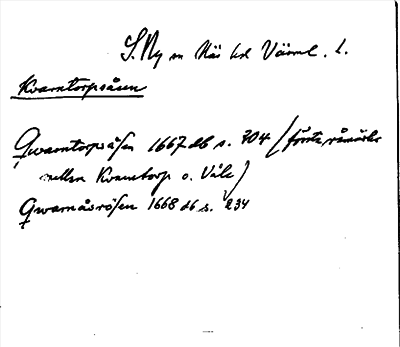 S. Ny sn Näs hd Värml. l.
Kvarntorpsåsen
Qwarntorpsåsen 1667 db s. 204 (första råmärke
mellan Kvarntorp o. Våle)
Qwarnåsrösen 1668 db s. 234